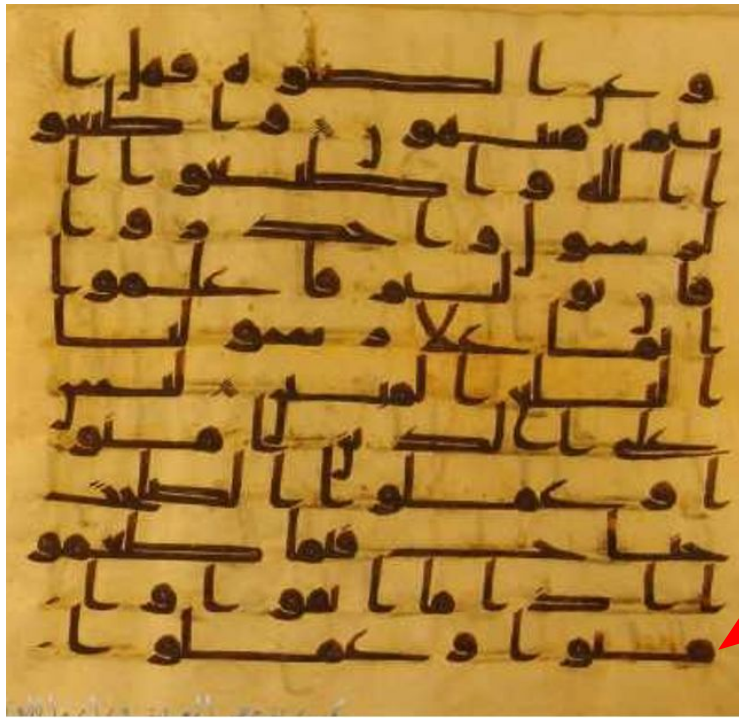 وعن الصلوه فهل ا
نتم منتهون واطيعو
ا الله واطيعوا ا
لرسول واحذروا
فان توليتم فاعلموا
انما علا رسولنا
البلغ المبين ليس
على الذين امنو
ا وعملوا الصلحت
جناح فيما طعمو
ا اذا ما اتقوا وا
منوا وعملوا